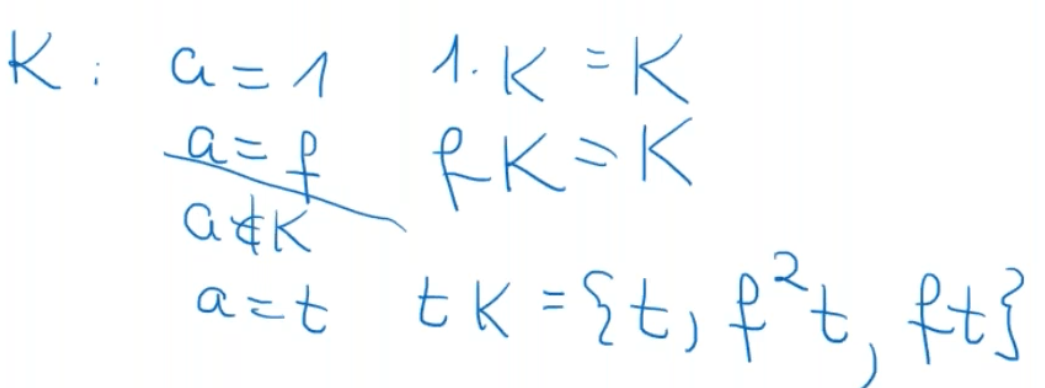 K: a = 1 1. K = K
a = f f K = K
a ∉ K
a = t t K = {t, f²t, ft}